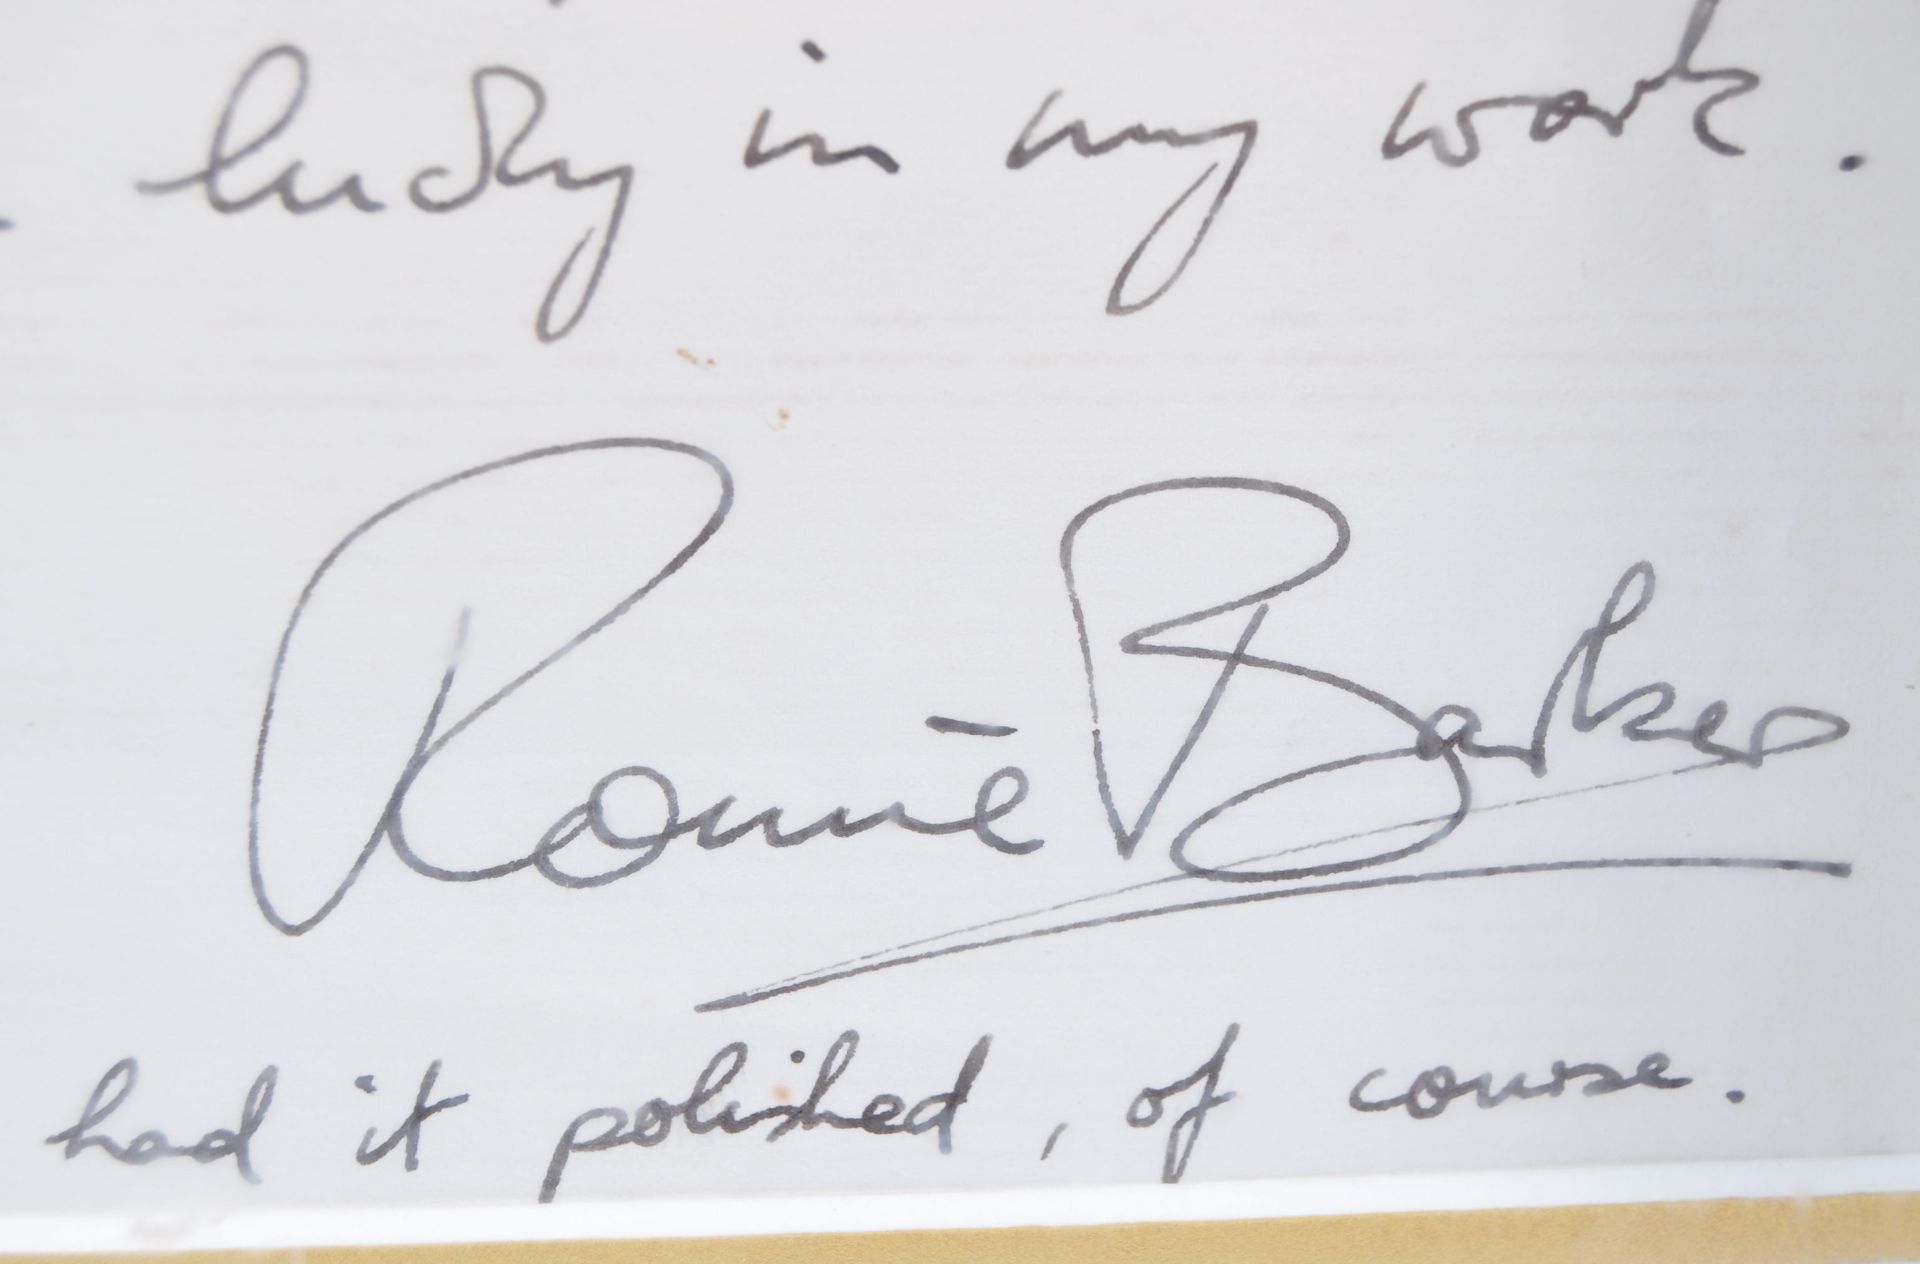 lucky in my work.
Ronnie Barker
had it polished, of course.